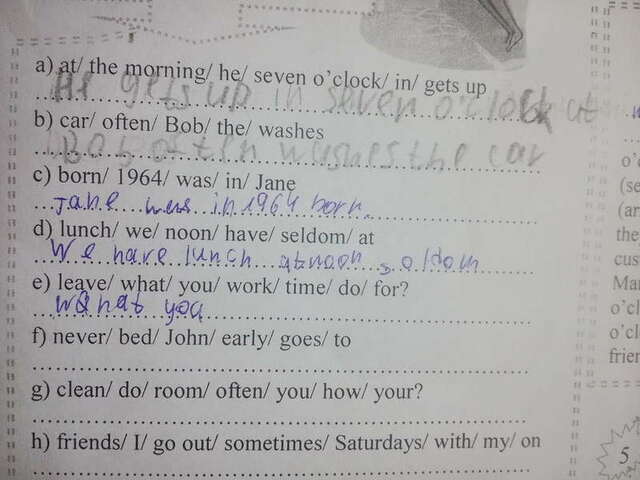 a) at/ the morning/ he/ seven o'clock/ in/ gets up
He gets up in seven o'clock at
b) car/ often/ Bob/ the/ washes
Bob often washes the car
c) born/ 1964/ was/ in/ Jane
Jane was in 1964 born.
d) lunch/ we/ noon/ have/ seldom/ at
We have lunch at noon soldom
e) leave/ what/ you/ work/ time/ do/ for?
What you
f) never/ bed/ John/ early/ goes/ to
g) clean/ do/ room/ often/ you/ how/ your?
h) friends/ I/ go out/ sometimes/ Saturdays/ with/ my/ on
o'
(se
(ar
the
cus
Mar
o'cl
o'cl
frien
5